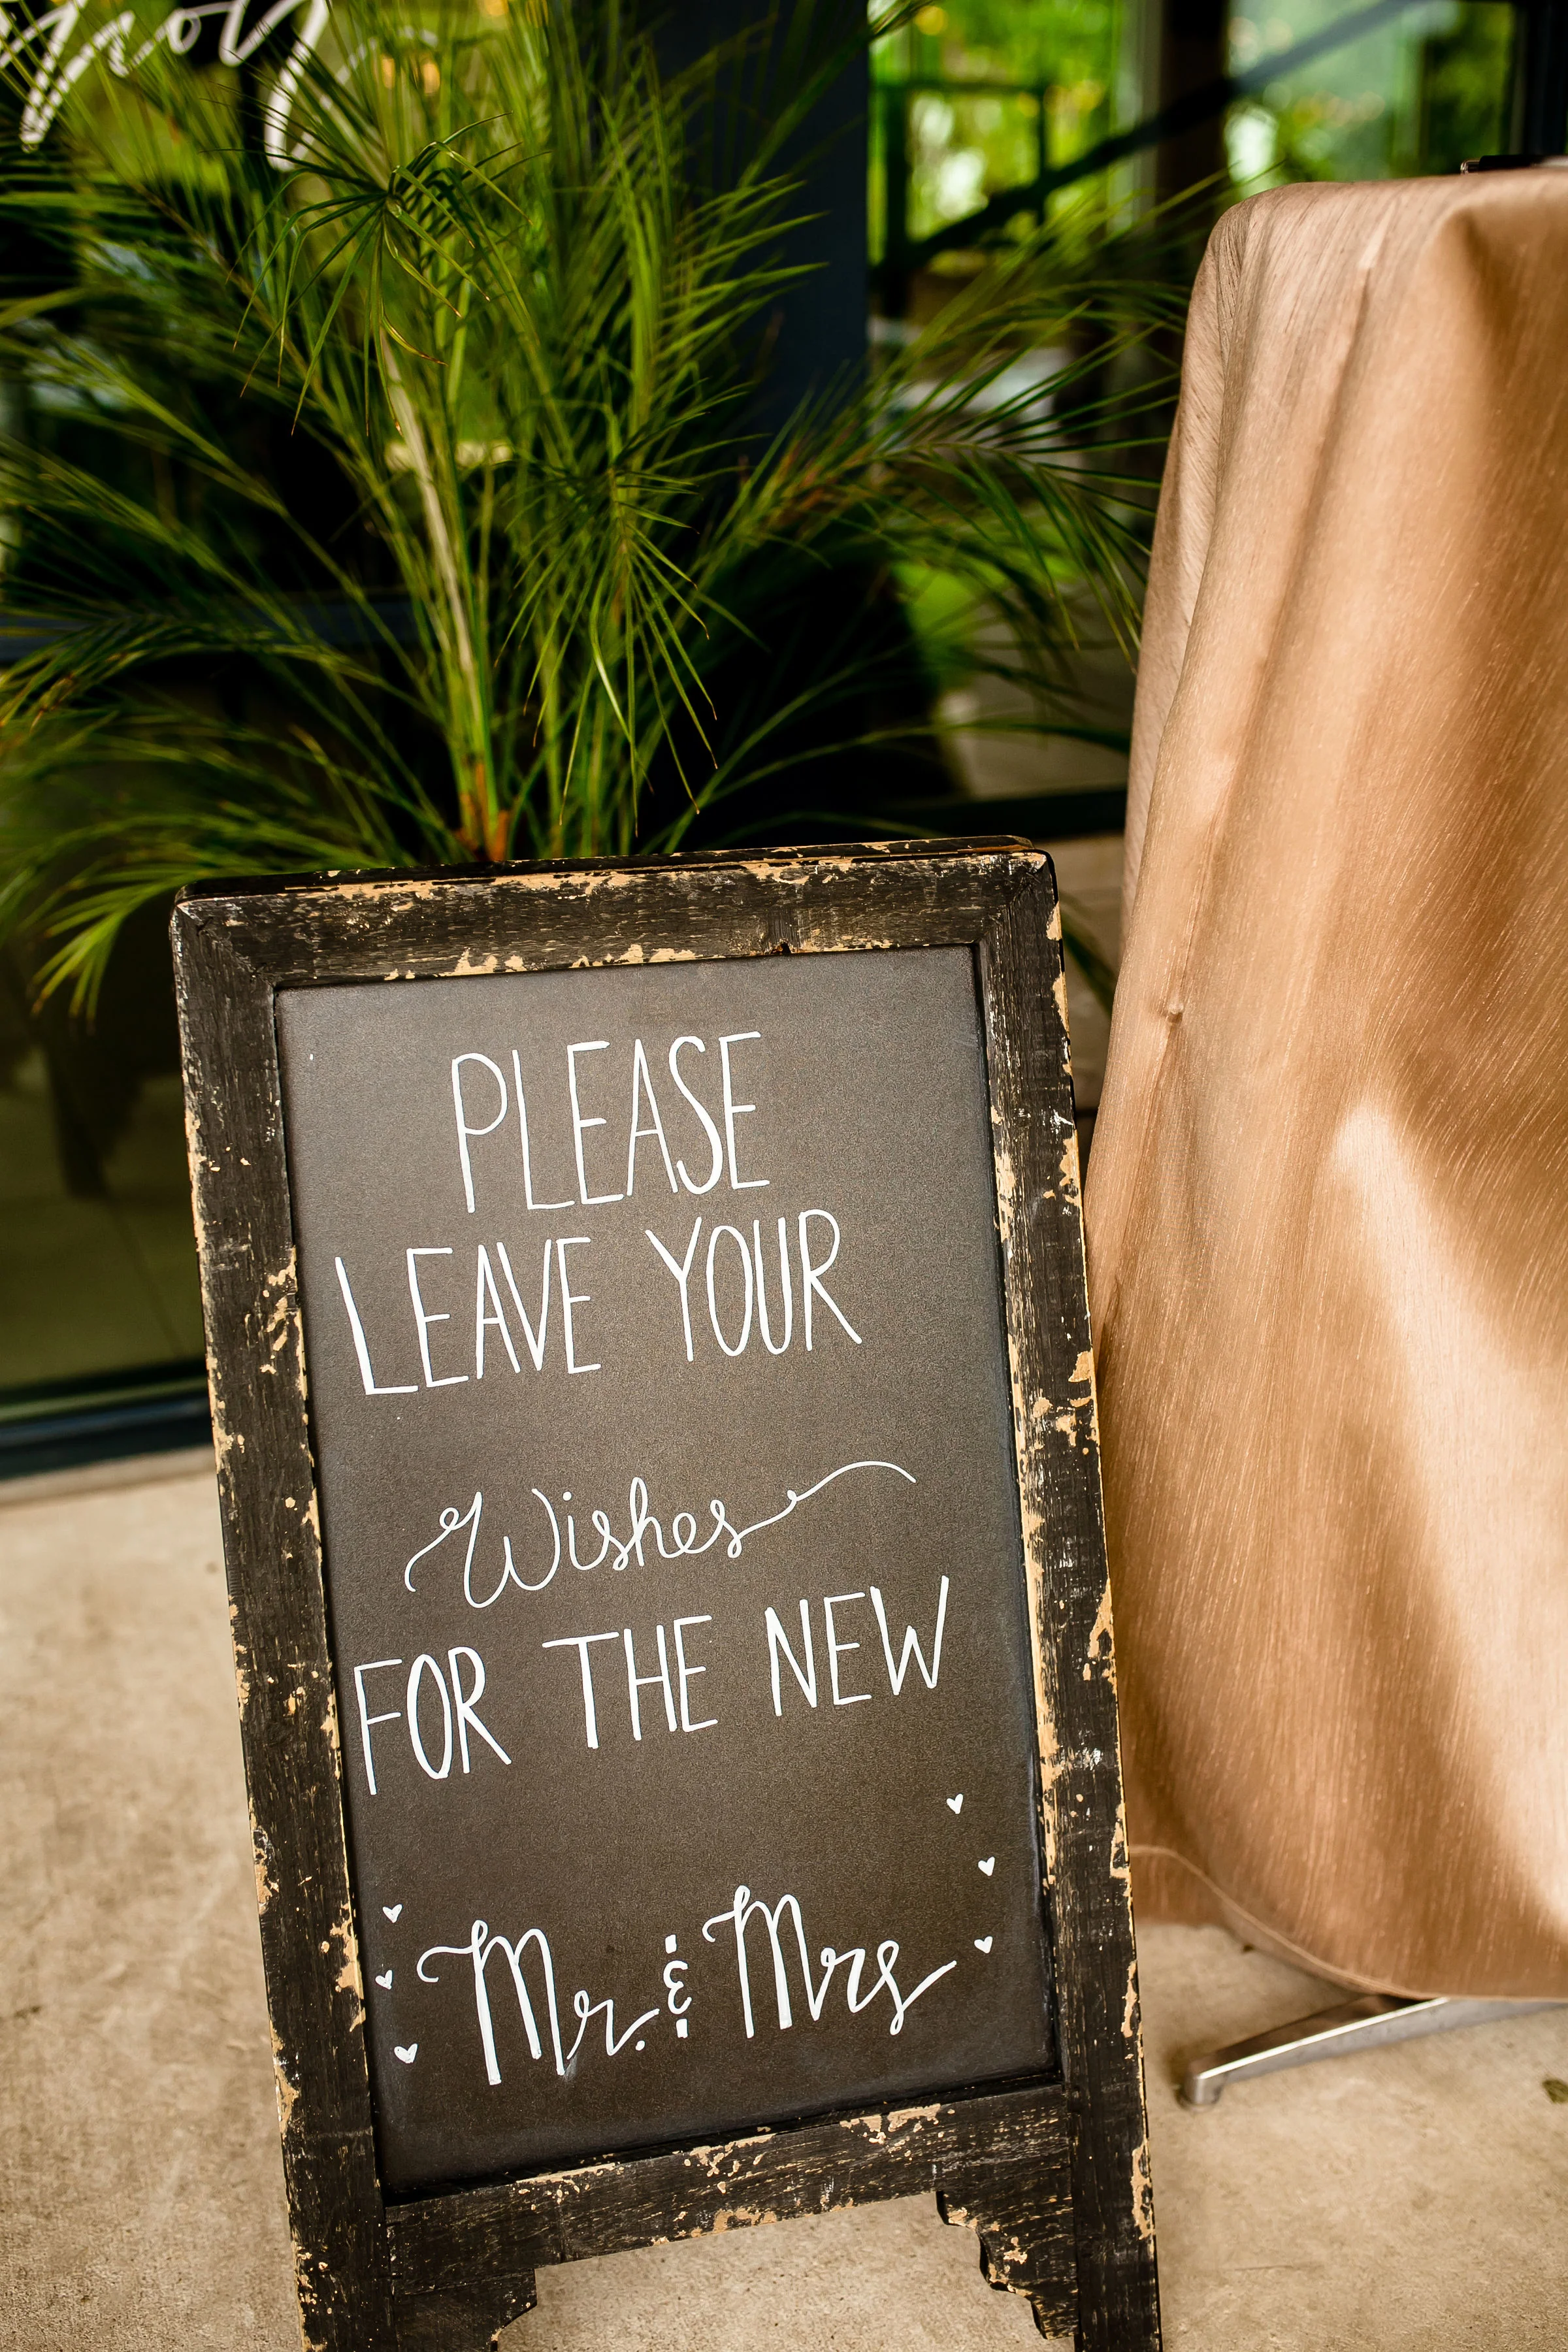 PLEASE
LEAVE YOUR
Wishes
FOR THE NEW
Mr. & Mrs